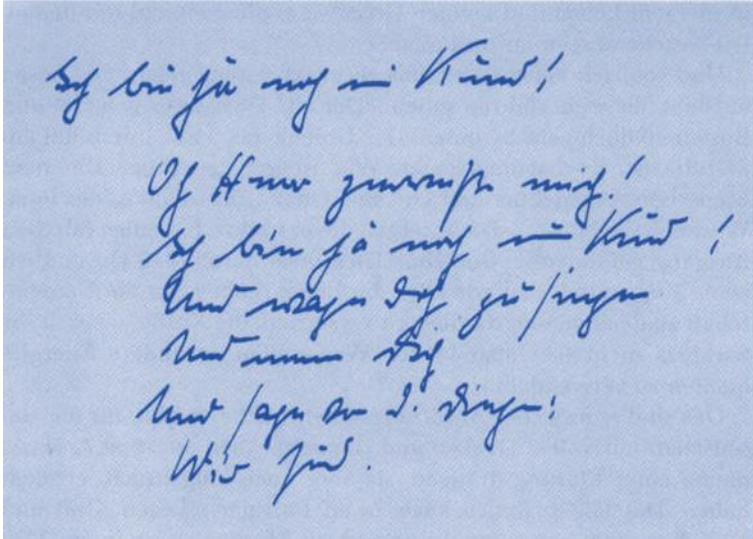 Ich bin ja noch ein Kind!
Oh Herr zerreiße mich!
Ich bin ja noch ein Kind!
Und wage doch zu singen
Und nenne Dich
Und sage von d. Dingen:
Wir sind.